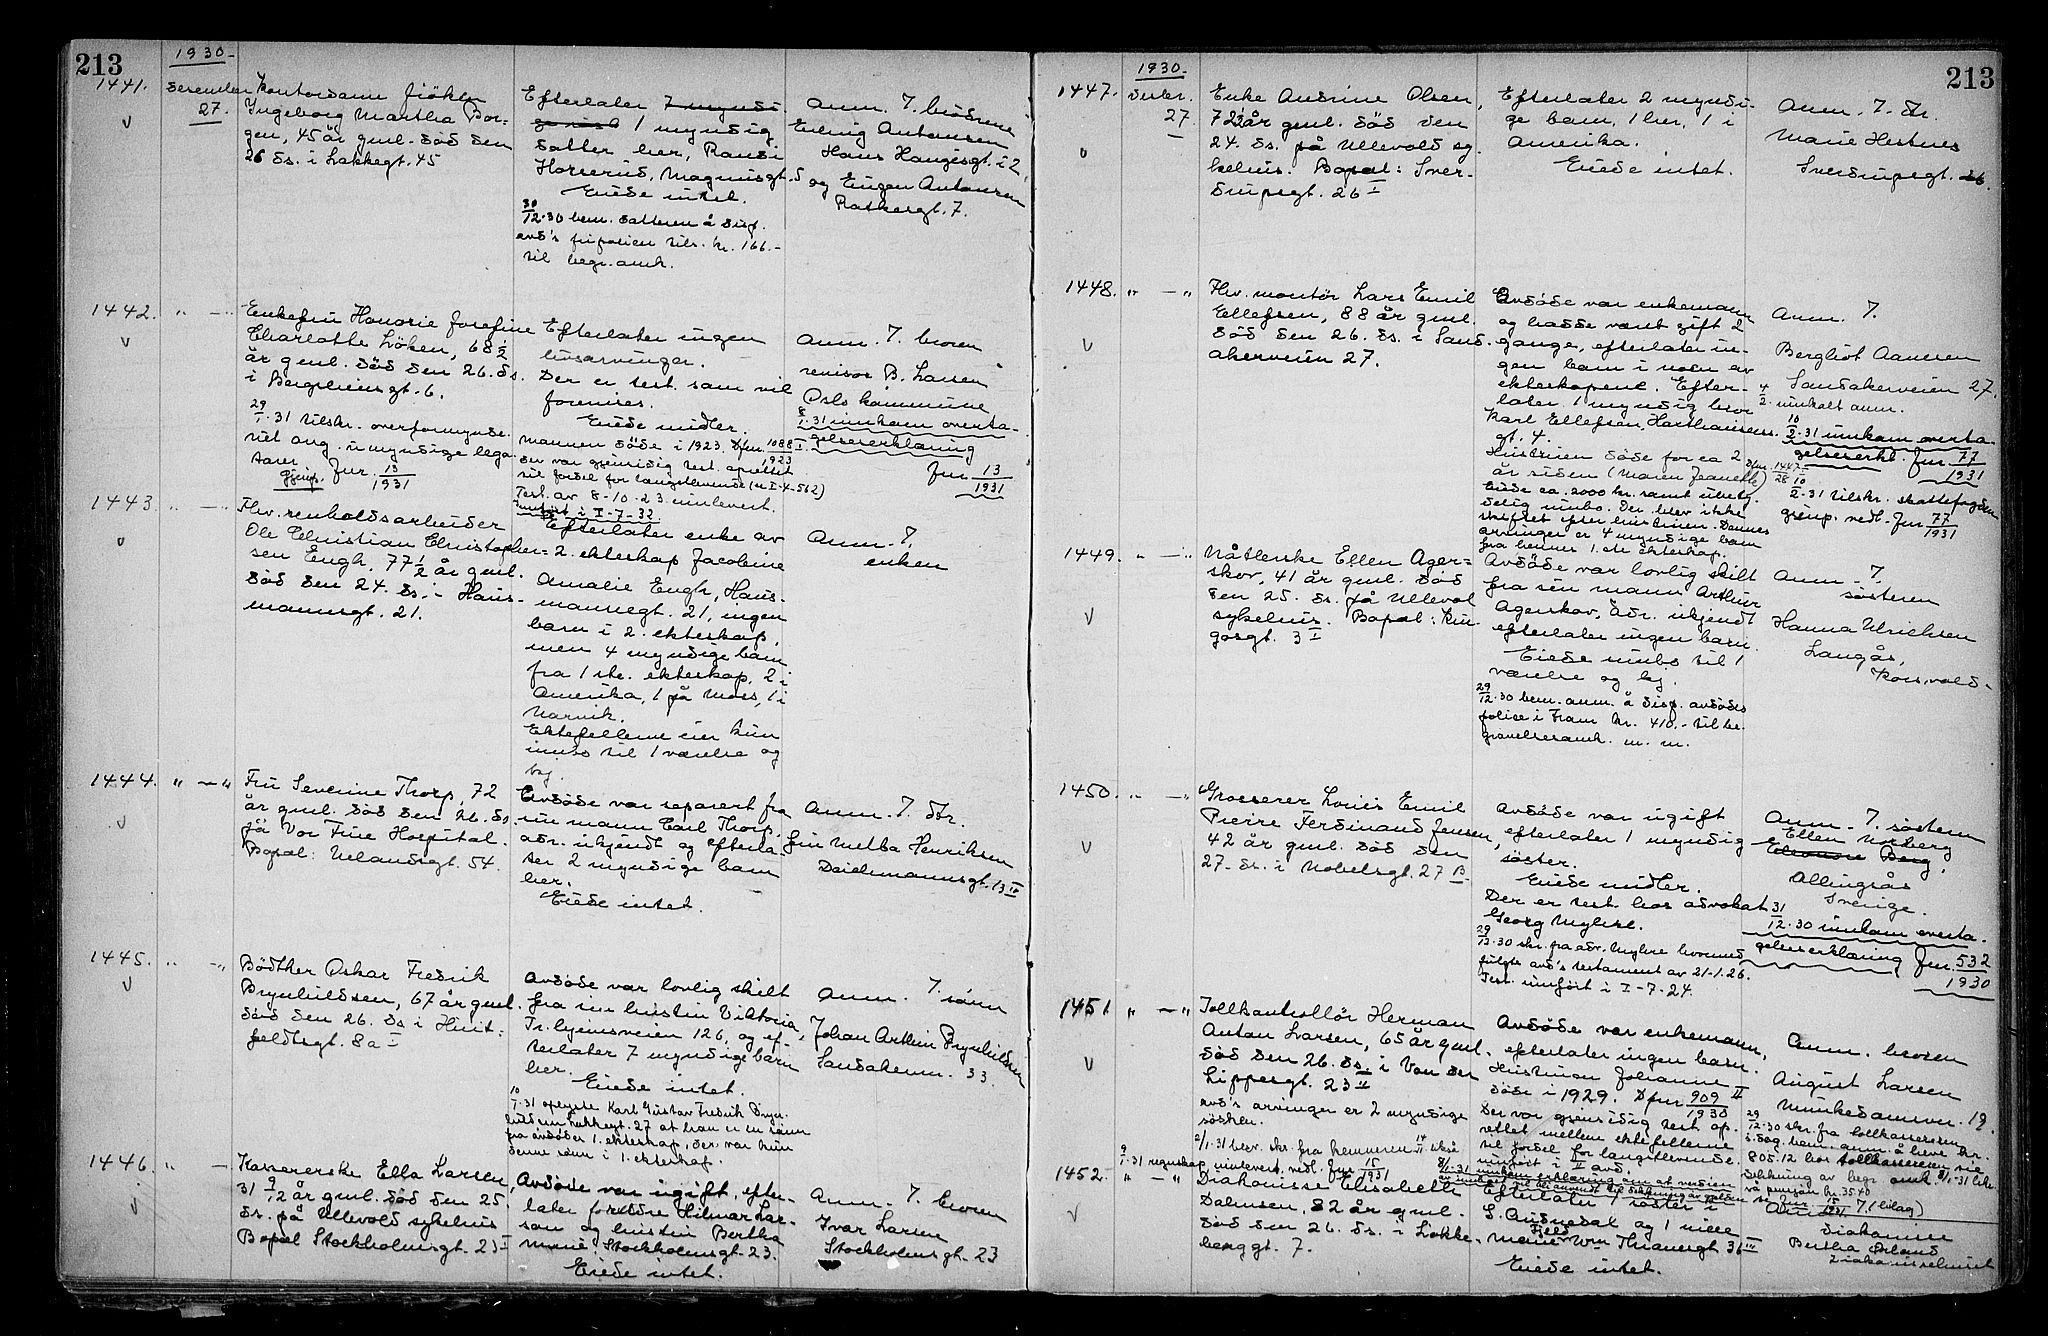 213
1930.
1441. Desember 27.
Kontordame frøken
Ingeborg Martha Bor-
gen, 45 år gml. död den
26 ds. i Lakkegt. 45
Efterlater 7 myndi
1 myndig
datter her, Randi
Horserud, Magnusgt. 5
Eiede intet.
30/12.30 bem. datteren å disp.
avd's fripolien tils. kr. 166.-
til begr. omk.
Anm. 7. brödrene
Erling Antonsen
Hans Haugesgt. 12,
og Eugen Antonsen
Rathkesgt. 7.
1442. " — "
Enkefru Honorie Josefine
Charlotte Löken, 68 1/2
år gml. död den 26. ds.
i Bergsliensgt. 6.
29/1.31 tilskr. overformynde.
ret ang. umyndige lega-
tarer. Jnr 13/1931
Efterlater ingen
livsarvinger.
Der er test. som vil
forevises.
Eiede midler.
Mannen döde i 1923. Djnr. 1088/923 I
der var gjensidig test. oprettet
til fordel for lengstlevende (se I-4-562)
Test. av 8-10-23 innlevert.
innført i I-7-32.
Anm. 7. broren
revisor B. Larsen
Oslo kommune
8/1.31 innkom overta-
gelseserklæring
Jnr 13/1931
1443. " — "
Fhv. renholdsarbeider
Ole Christian Christopher-
sen Engh, 77 1/2 år gml.
död den 24. ds. i Haus-
mannsgt. 21.
Efterlater enke av
2. ekteskap Jacobine
Amalie Engh, Haus-
mannsgt. 21, ingen
barn i 2. ekteskap,
men 4 myndige barn
fra 1 ste. ekteskap, 2 i
Amerika, 1 på Moss, 1 i
Narvik.
Ektefellene eier kun
innbo til 1 værelse og
kj.
Anm. 7.
enken
1444. " — "
Fru Severine Thorp, 72
år gml. död den 26. ds.
på Vor Frue Hospital.
Bopæl: Uelandsgt. 54.
Avdöde var separert fra
sin mann Carl Thorp,
adr. ukjendt og efterla-
ter 2 myndige barn
her.
Eiede intet.
Anm. 7. dtr.
fru Melba Henriksen
Deichmannsgt. 13 II
1445. " — "
Bödther Oskar Fredrik
Brynhildsen, 67 år gml.
död den 26. ds i Huit-
feldtsgt. 8a I
Avdöde var lovlig skilt
fra sin hustru Viktoria,
Tr. hjemsveien 126, og ef-
terlater 7 myndige barn
her.
Eiede intet.
10/1.31 oplyste Karl Gustav Fredrik Bryn-
hildsen Lakkegt. 27 at han er en sönn
fra avdödes 1. ekteskap, der var kun
denne sönn i 1. ekteskap.
Anm. 7. sönn
Johan Arthur Brynhildsen
Sandakerv. 33.
1446. " —
Kassererske Ella Larsen,
31 9/12 år gml. död den 25.
ds. på Ullevold sykehus
Bopæl Stockholmsgt. 23 I
Avdöde var ugift, efter-
later foreldre Hilmar Lar-
sen og hustru Bertha
Marie, Stockholmsgt. 23.
Eiede intet.
Anm. 7. broren
Ivar Larsen
Stockholmsgt. 23
213
1930.
1447. Desbr. 27.
Enke Andrine Olsen,
72 1/2 år gml. död den
24. ds. på Ullevold sy-
kehus. Bopæl: Sver-
drupsgt. 26 I
Efterlater 2 myndi-
ge barn, 1 her, 1 i
Amerika.
Eiede intet.
Anm. 7. dtr.
Marie Hestnes
Sverdrupsgt. 26.
1448. " — "
Fhv. montör Lars Emil
Ellefsen, 88 år gml.
död den 26. ds. i Sand-
akerveien 27.
Avdöde var enkemann
og hadde vært gift 2
gange, efterlater in-
gen barn i noen av
ekteskapene. Efter-
later 1 myndig bror
Karl Ellefsen, Holthausens-
gt. 4.
Hustruen döde for ca 2
år siden (Maren Jeanette) Djnr. 1447/28
Eiede ca. 2000 kr. samt ubety-
delig innbo. Der blev ikke
skiftet efter hustruen. Dennes
arvinger er 4 myndige barn
fra hennes 1. ste ekteskap.
Anm. 7.
Bergliot Aanesen
Sandakerveien 27.
4/2. innkalt anm.
10/2.31 innkom overta-
gelseserkl. Jnr. 77/1931
10/2-31 tilskr. skattefogden
gjenp. vedl. Jnr 77/1931
1449. " — "
Nåtlerske Ellen Ager-
skov, 41 år gml. död
den 25. ds. på Ullevol
sykehus. Bopæl: Kin-
gosgt. 3 I
Avdöde var lovlig skilt
fra sin mann Arthur
Agerskov, adr. ukjendt
efterlater ingen barn.
Eiede innbo til 1
værelse og kj.
29/12.30 bem. anm. å disp. avdödes
police i Fram kr. 410.- til be-
gravelsesomk. m. m.
Anm. 7.
søsteren
Hanna Ulrichsen
Langås,
Kors, vold-
1450. " — "
Grosserer Louis Emil
Pierre Ferdinand Jensen,
42 år gml. död den
27. ds. i Nobelsgt. 27 B
Avdöde var ugift
efterlater 1 myndig
søster.
Eiede midler.
Der er test. hos advokat
Georg Myhre.
29/12.30 skr. fra adv. Myhre hvormed
fulgte avd's testament av 21-1.26.
Test. innfört i I-7-24.
Anm. 7. søstern
Ellen Norberg
Eleonore Berg,
Allingsås
Sverige.
31/12.30 innkom overta-
gelseserklæring Jnr. 532/1930
1451 " — "
Tollkontrollör Herman
Anton Larsen, 65 år gml.
död den 26. ds. i Von der
Lippesgt. 23 II
avd's arvinger er 2 myndige
söskен.
Avdöde var enkemann,
efterlater ingen barn.
Hustruen Johanne
döde i 1929. Djnr 909/1930 II
Der var gjensidig test. op-
rettet mellem ektefellene
til fordel for lengstlevende.
innfört i II avd.
Anm. broren
August Larsen
Munkedamsv. 19.
29/12.30 skr. fra tollkassereren
i. dag bem. anm. å heve kr.
805.12 hos tollkassereren
1452. " — "
Diakonisse Elisabeth
Dalensen, 82 år gml.
död den 26. ds. i Lökke-
berggt. 7.
Efterlater 1 søster i
S. Audnedal og 1 niese
Marie Wm Thranesgt 36 III
Eiede intet.
Anm.
Diakonisse
Bertha Orland
Diakonissehuset